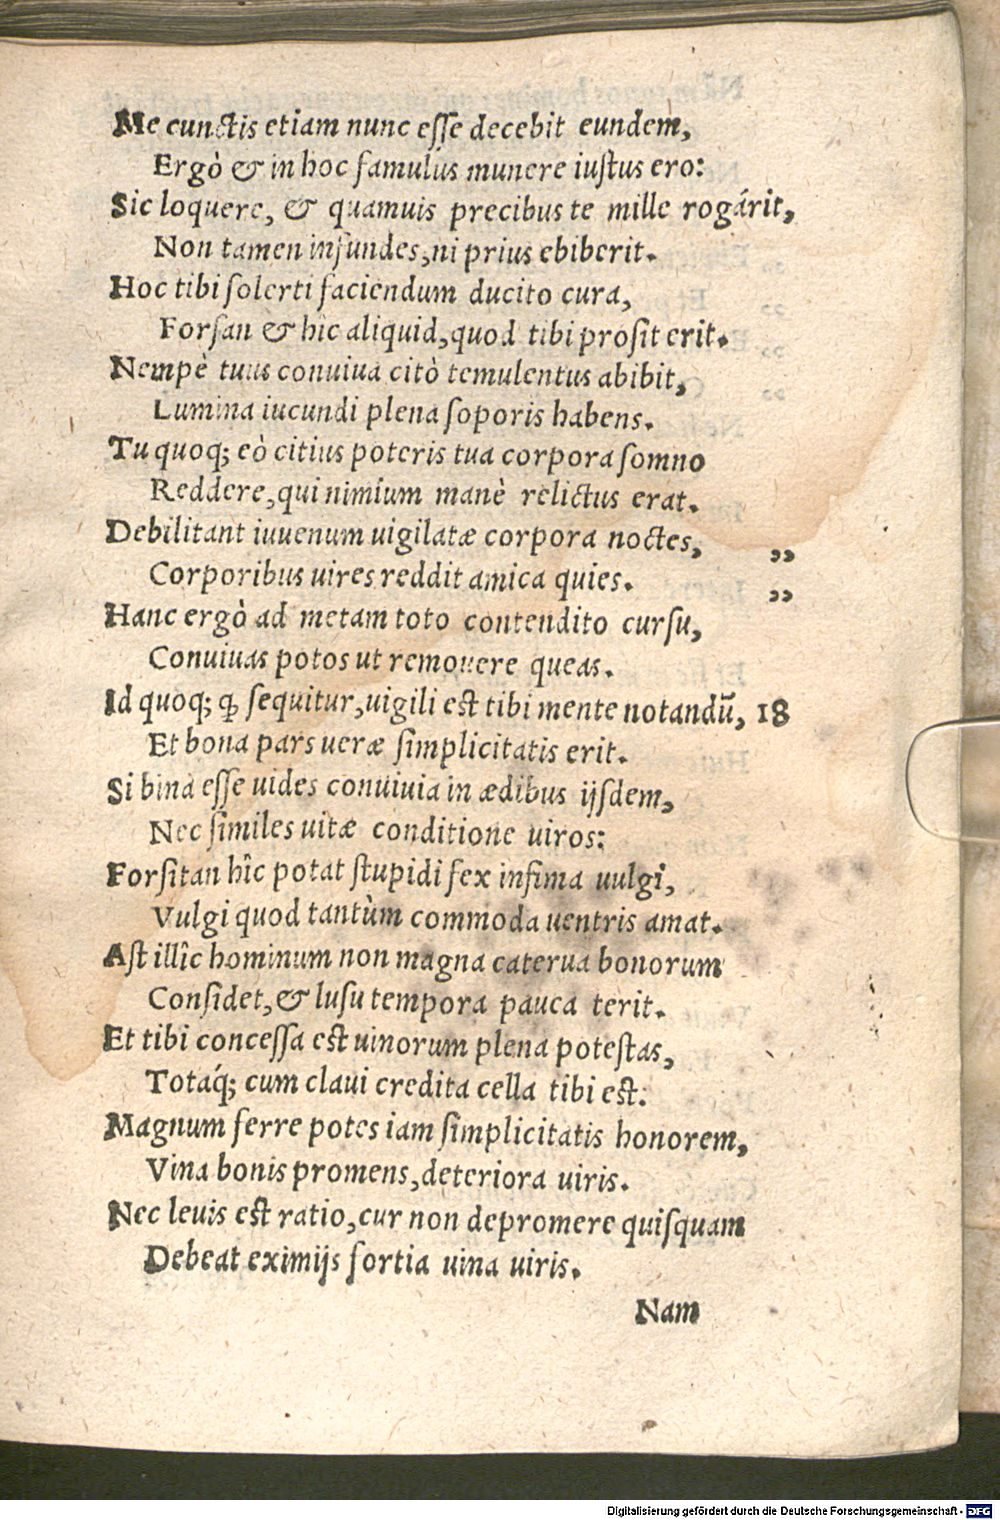 Me cunctis etiam nunc eſſe decebit eundem,
Ergò & in hoc famulus munere iuſtus ero:
Sic loquere, & quamuis precibus te mille rogárit,
Non tamen infundes, ni prius ebiberit.
Hoc tibi ſolerti faciendum ducito cura,
Forſan & hîc aliquid, quod tibi proſit erit.
Nempè tuus conuiua citò temulentus abibit,
Lumina iucundi plena ſoporis habens.
Tu quoq; eò citius poteris tua corpora ſomno
Reddere, qui nimium manè relictus erat.
Debilitant iuuenum uigilatæ corpora noctes, „
Corporibus uires reddit amica quies. „
Hanc ergò ad metam toto contendito curſu,
Conuiuas potos ut remouere queas.
Id quoq; ꝙ ſequitur, uigili eſt tibi mente notandū, 18
Et bona pars ueræ ſimplicitatis erit.
Si bina eſſe uides conuiuia in ædibus ijſdem,
Nec ſimiles uitæ conditione uiros:
Forſitan hîc potat ſtupidi fex infima uulgi,
Vulgi quod tantùm commoda uentris amat.
Aſt illîc hominum non magna caterua bonorum
Conſidet, & luſu tempora pauca terit.
Et tibi conceſſa eſt uinorum plena poteſtas,
Totaq́; cum claui credita cella tibi eſt:
Magnum ferre potes iam ſimplicitatis honorem,
Vina bonis promens, deteriora uiris.
Nec leuis eſt ratio, cur non depromere quiſquam
Debeat eximijs fortia uina uiris.
Nam
Digitalisierung gefördert durch die Deutsche Forschungsgemeinschaft - DFG